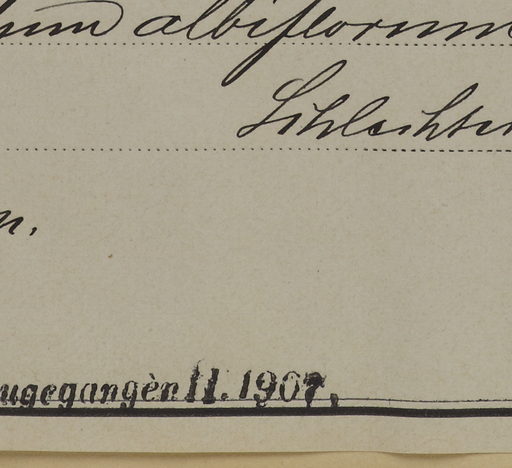 um albiflorum
Schlechter
n.
ugegangen II. 1907.